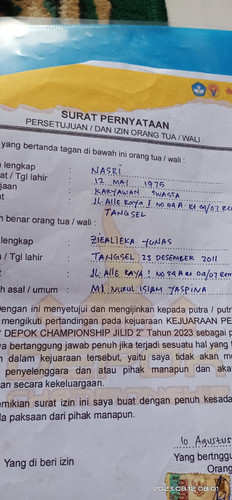 SURAT PERNYATAAN
PERSETUJUAN / DAN IZIN ORANG TUA / WALI
yang bertanda tangan di bawah ini orang tua / wali :
lengkap : NASRI
at / Tgl lahir : 12 MAI 1975
jaan : KARYAWAN SWASTA
t : JL. ALLE RAYA ! NO 59 A Rt 09/07 Rem
TANGSEL
n benar orang tua / wali :
lengkap : TUNAS
/ Tgl lahir : TANGSEL 23 DESEMBER 2011
t : JL ALLE RAYA ! NO 59 A Rt 09/07 Rem
h asal / umum : MI. NURUL ISLAM YASPINA
Dengan ini menyetujui dan mengijinkan kepada putra / putri
mengikuti pertandingan pada kejuaraan KEJUARAAN PE
DEPOK CHAMPIONSHIP JILID 2" Tahun 2023 sebagai p
a bertanggung jawab penuh jika terjadi sesuatu hal yang t
n dalam kejuaraan tersebut, yaitu saya tidak akan mu
penyelenggara dan atau pihak manapun dan aka
an secara kekeluargaan.
emikian surat izin ini saya buat dengan penuh kesada
a paksaan dari pihak manapun.
10 Agustus
Yang di beri izin
Yang bertngg
Orang
2023.08.12 08:01